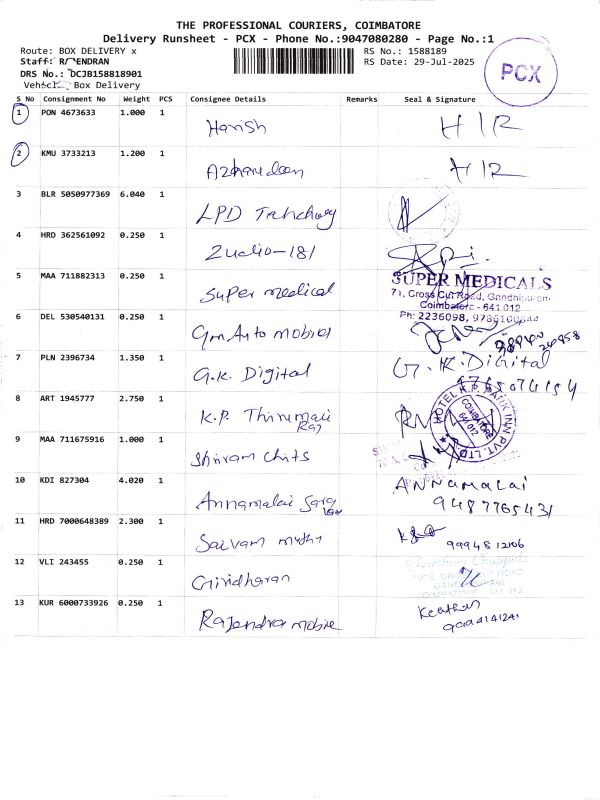 THE PROFESSIONAL COURIERS, COIMBATORE
Delivery Runsheet - PCX - Phone No.:9047080280 - Page No.:1
Route: BOX DELIVERY x
RS No.: 1588189
Staff: R ENDRAN
RS Date: 29-Jul-2025
DRS No.: DCJB158818901
Box Delivery
PCX
S No Consignment No Weight PCS Consignee Details Remarks Seal & Signature
1 PON 4673633 1.000 1 Harish HIR
2 KMU 3733213 1.200 1 HIR
3 BLR 5050977369 6.040 1 LPD
4 HRD 362561092 0.250 1 Zudio-181
5 MAA 711882313 0.250 1 Super medical
SUPER MEDICALS
71, Cross Cut Road, Gandhipuram
Coimbatore - 641 012
Ph: 2236098,
6 DEL 530540131 0.250 1 Gm Auto mobiles
7 PLN 2396734 1.350 1 G.K. Digital G.K. Digital
8 ART 1945777 2.750 1 K.P. Thirumali Raj
HOTEL K.P. PARK INN PVT. LTD.
COIMBATORE 641 012
9 MAA 711675916 1.000 1 Shriram Chits
10 KDI 827304 4.020 1 Annamalai ANNAMALAI
9487765431
11 HRD 7000648389 2.300 1 Saivam muthu
9994812106
12 VLI 243455 0.250 1 Giridharan
13 KUR 6000733926 0.250 1 Rajendra mobile